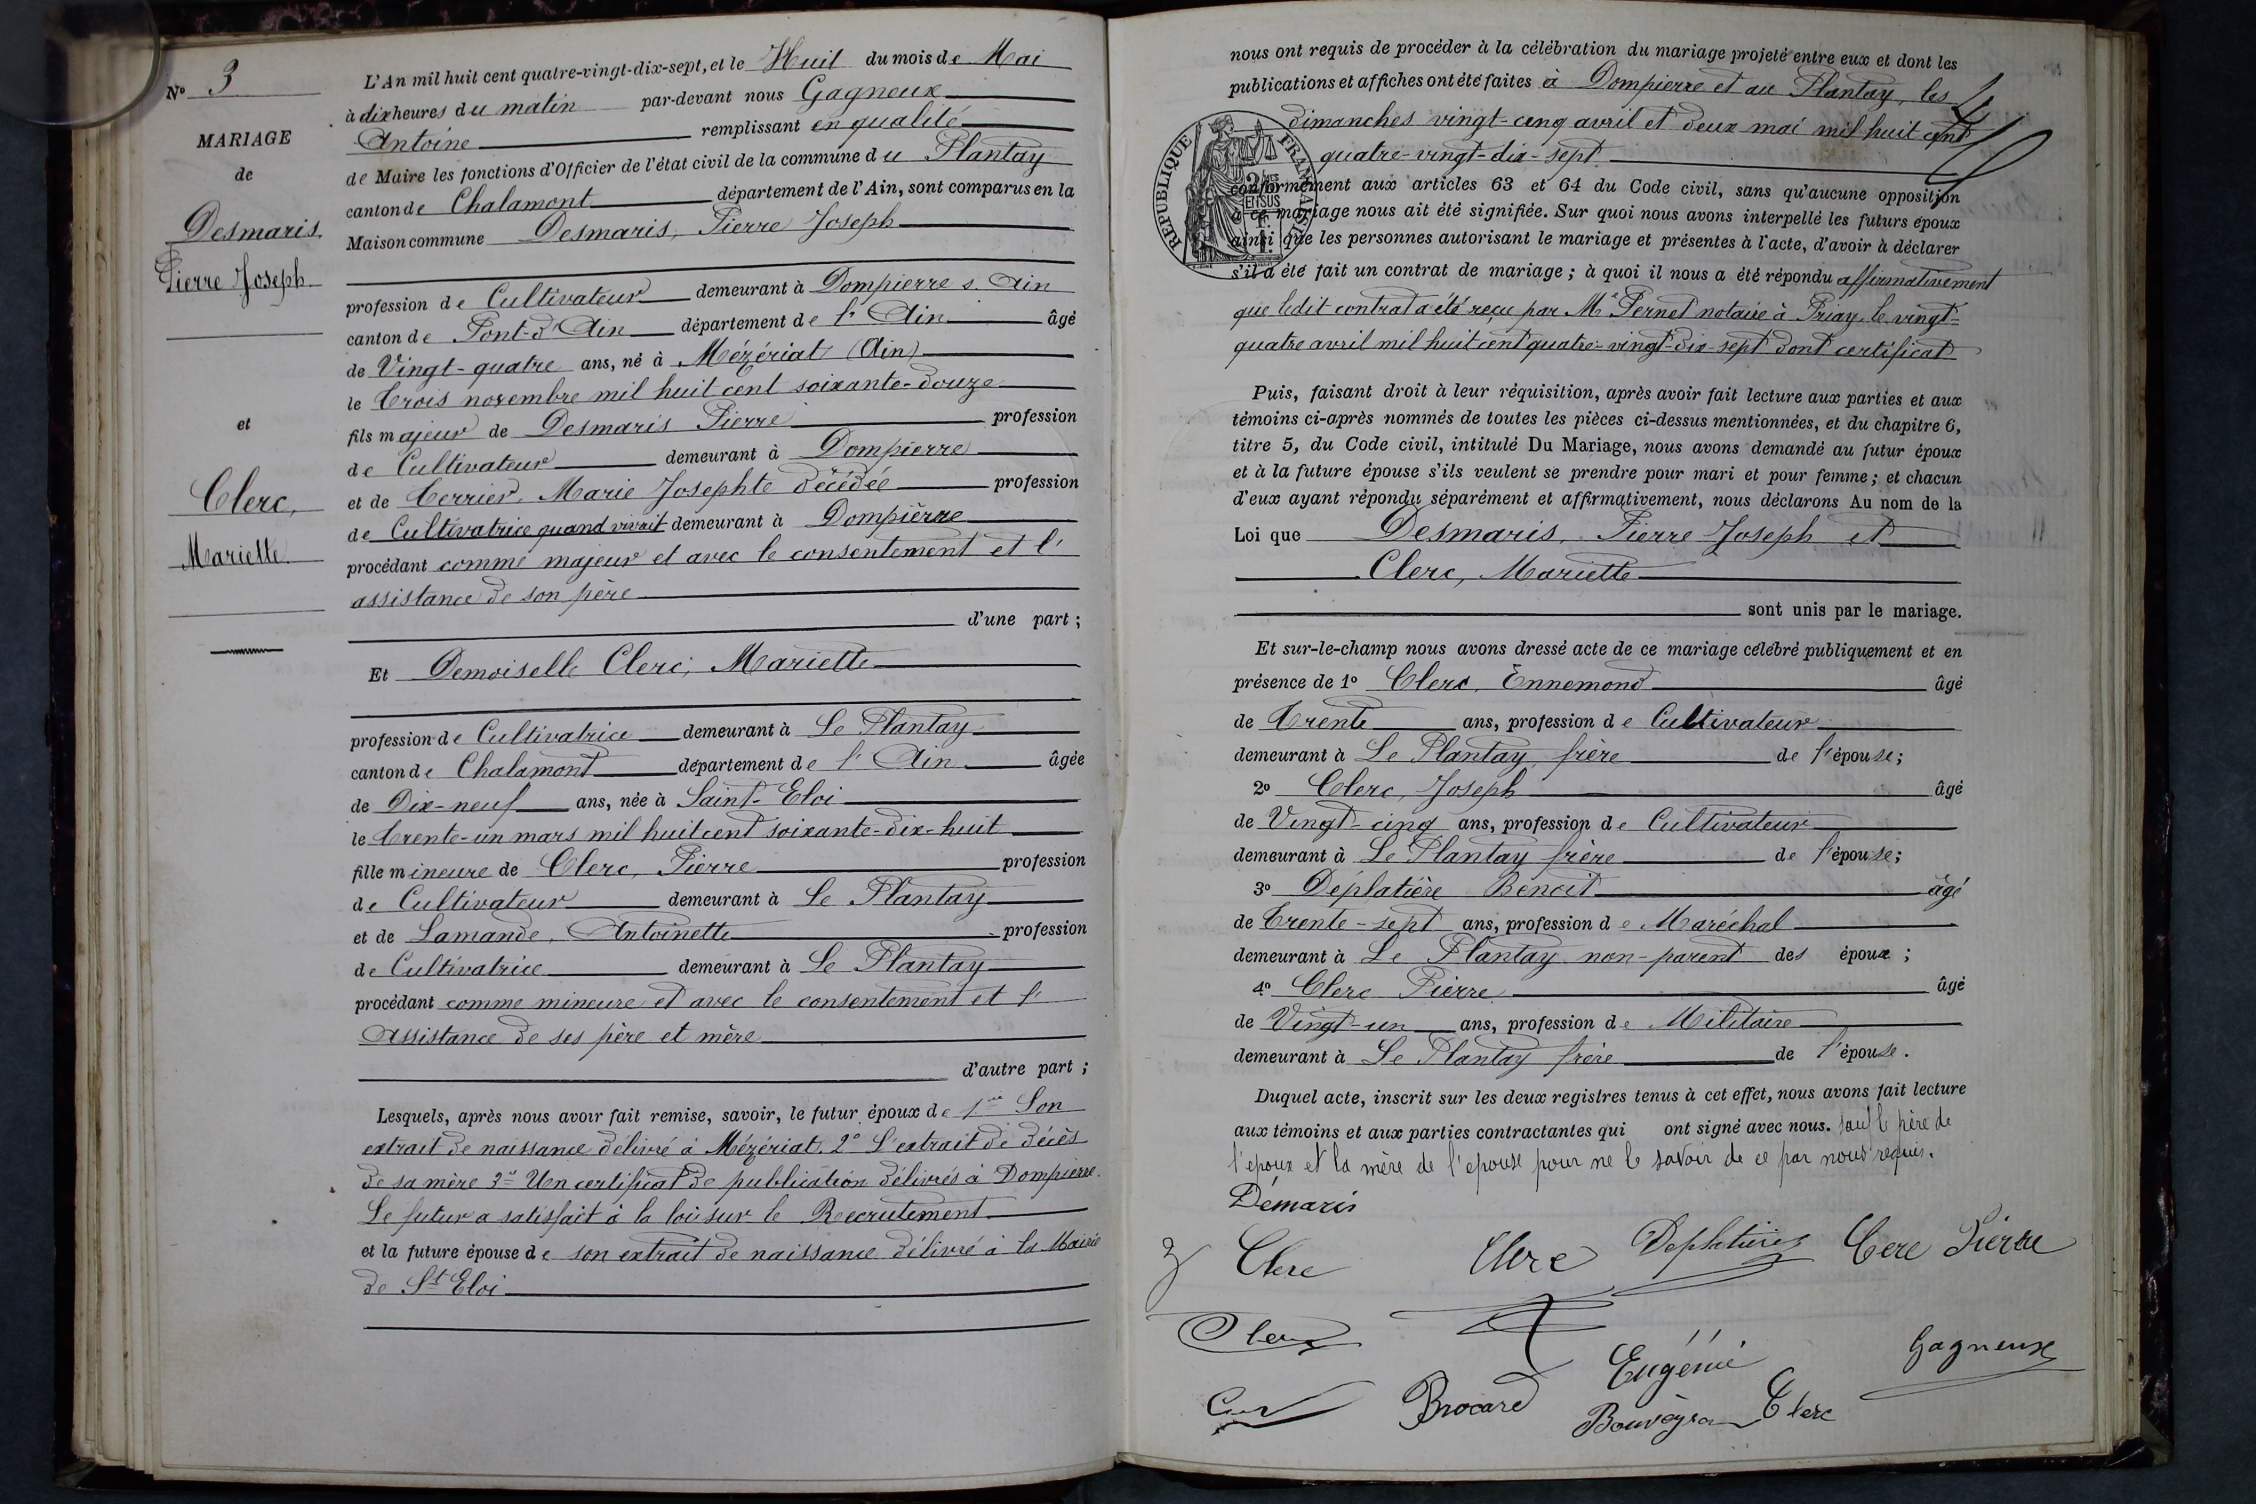 N° 3
MARIAGE
de
Desmaris,
Pierre Joseph
et
Clerc,
Mariette
L'An mil huit cent quatre-vingt-dix-sept, et le Huit du mois de Mai
à dix heures du matin par-devant nous Gagneux
Antoine remplissant en qualité
de Maire les fonctions d'Officier de l'état civil de la commune du Plantay
canton de Chalamont département de l'Ain, sont comparus en la
Maison commune Desmaris, Pierre Joseph
profession de Cultivateur demeurant à Dompierre s. Ain
canton de Pont-d'Ain département de l'Ain âgé
de Vingt-quatre ans, né à Mézériat (Ain)
le trois novembre mil huit cent soixante-douze
fils majeur de Desmaris Pierre profession
de Cultivateur demeurant à Dompierre
et de Terrier, Marie Josephte décédée profession
de Cultivatrice quand vivait demeurant à Dompierre
procédant comme majeur et avec le consentement et l'
assistance de son père
d'une part ;
Et Demoiselle Clerc, Mariette
profession de Cultivatrice demeurant à Le Plantay
canton de Chalamont département de l'Ain âgée
de Dix-neuf ans, née à Saint-Eloi
le trente-un mars mil huit cent soixante-dix-huit
fille mineure de Clerc, Pierre profession
de Cultivateur demeurant à Le Plantay
et de Lamande, Antoinette profession
de Cultivatrice demeurant à Le Plantay
procédant comme mineure et avec le consentement et l'
assistance de ses père et mère
d'autre part ;
Lesquels, après nous avoir fait remise, savoir, le futur époux de 1° Son
extrait de naissance délivré à Mézériat. 2° L'extrait de décès
de sa mère 3° Un certificat de publication délivrés à Dompierre.
Le futur a satisfait à la loi sur le Recrutement
et la future épouse de son extrait de naissance délivré à la Mairie
de St Eloi
nous ont requis de procéder à la célébration du mariage projeté entre eux et dont les
publications et affiches ont été faites à Dompierre et au Plantay, les
dimanches vingt-cinq avril et deux mai mil huit cent
quatre-vingt-dix-sept
REPUBLIQUE FRANÇAISE
conformément aux articles 63 et 64 du Code civil, sans qu'aucune opposition
à ce mariage nous ait été signifiée. Sur quoi nous avons interpellé les futurs époux
ainsi que les personnes autorisant le mariage et présentes à l'acte, d'avoir à déclarer
s'il a été fait un contrat de mariage ; à quoi il nous a été répondu affirmativement
que ledit contrat a été reçu par Me Pernet notaire à Priay, le vingt-
quatre avril mil huit cent quatre-vingt-dix-sept dont certificat
Puis, faisant droit à leur réquisition, après avoir fait lecture aux parties et aux
témoins ci-après nommés de toutes les pièces ci-dessus mentionnées, et du chapitre 6,
titre 5, du Code civil, intitulé Du Mariage, nous avons demandé au futur époux
et à la future épouse s'ils veulent se prendre pour mari et pour femme ; et chacun
d'eux ayant répondu séparément et affirmativement, nous déclarons Au nom de la
Loi que Desmaris, Pierre Joseph et
Clerc, Mariette
sont unis par le mariage.
Et sur-le-champ nous avons dressé acte de ce mariage célébré publiquement et en
présence de 1° Clerc, Ennemond âgé
de trente ans, profession de Cultivateur
demeurant à Le Plantay frère de l'épouse ;
2° Clerc, Joseph âgé
de Vingt-cinq ans, profession de Cultivateur
demeurant à Le Plantay frère de l'épouse ;
3° Déplatière Benoit âgé
de trente-sept ans, profession de Maréchal
demeurant à Le Plantay non-parent des époux ;
4° Clerc Pierre âgé
de Vingt-un ans, profession de Militaire
demeurant à Le Plantay frère de l'épouse.
Duquel acte, inscrit sur les deux registres tenus à cet effet, nous avons fait lecture
aux témoins et aux parties contractantes qui ont signé avec nous. sauf le père de
l'époux et la mère de l'épouse pour ne le savoir de ce par nous requis.
Démaris
Clerc Clerc Deplatière Clerc Pierre
Clerc
Eugénie Gagneux
Brocard Bouveyron Clerc